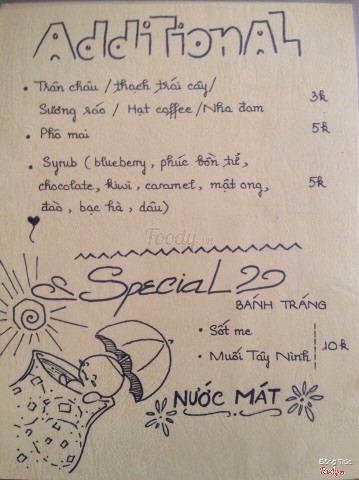 Additional
• Trân châu / thạch trái cây /
Sương sáo / Hạt coffee / Nha đam 3k
• Phô mai 5k
• Syrub ( blueberry , phúc bồn tử ,
chocolate , kiwi , caramel , mật ong , 5k
đào , bạc hà , dâu)
Foody.vn
Special
BÁNH TRÁNG
• Sốt me
• Muối Tây Ninh 10k
NƯỚC MÁT
Foody.vn